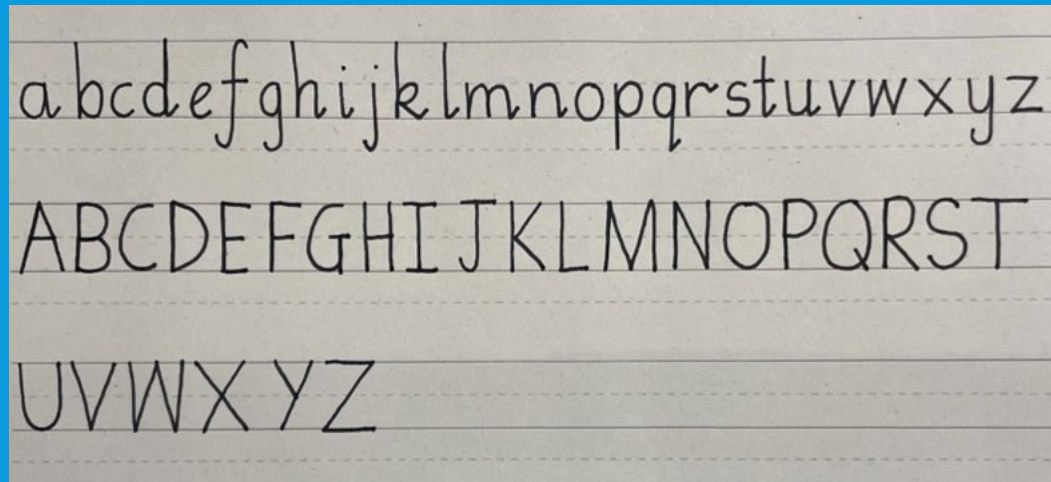 a b c d e f g h i j k l m n o p q r s t u v w x y z
A B C D E F G H I J K L M N O P Q R S T
U V W X Y Z